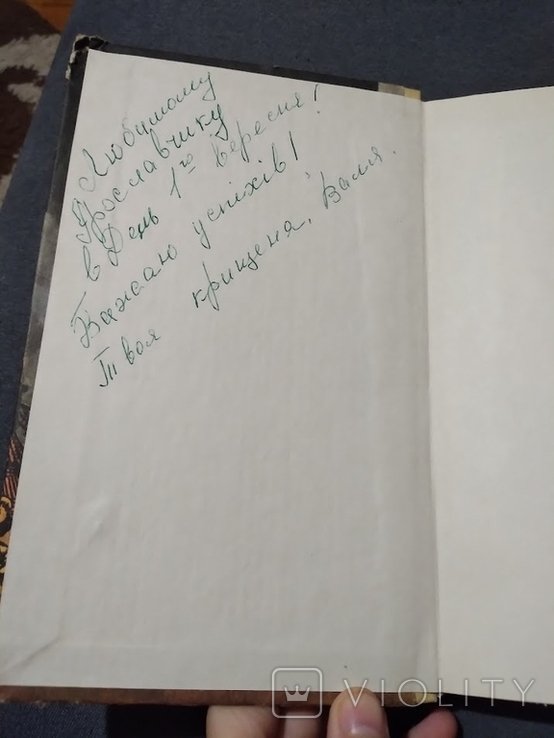 Любимому
Ярославчику
в День 1го Вересня!
Бажаю успіхів!
Твоя крищеня, Валя.
VIOLITY